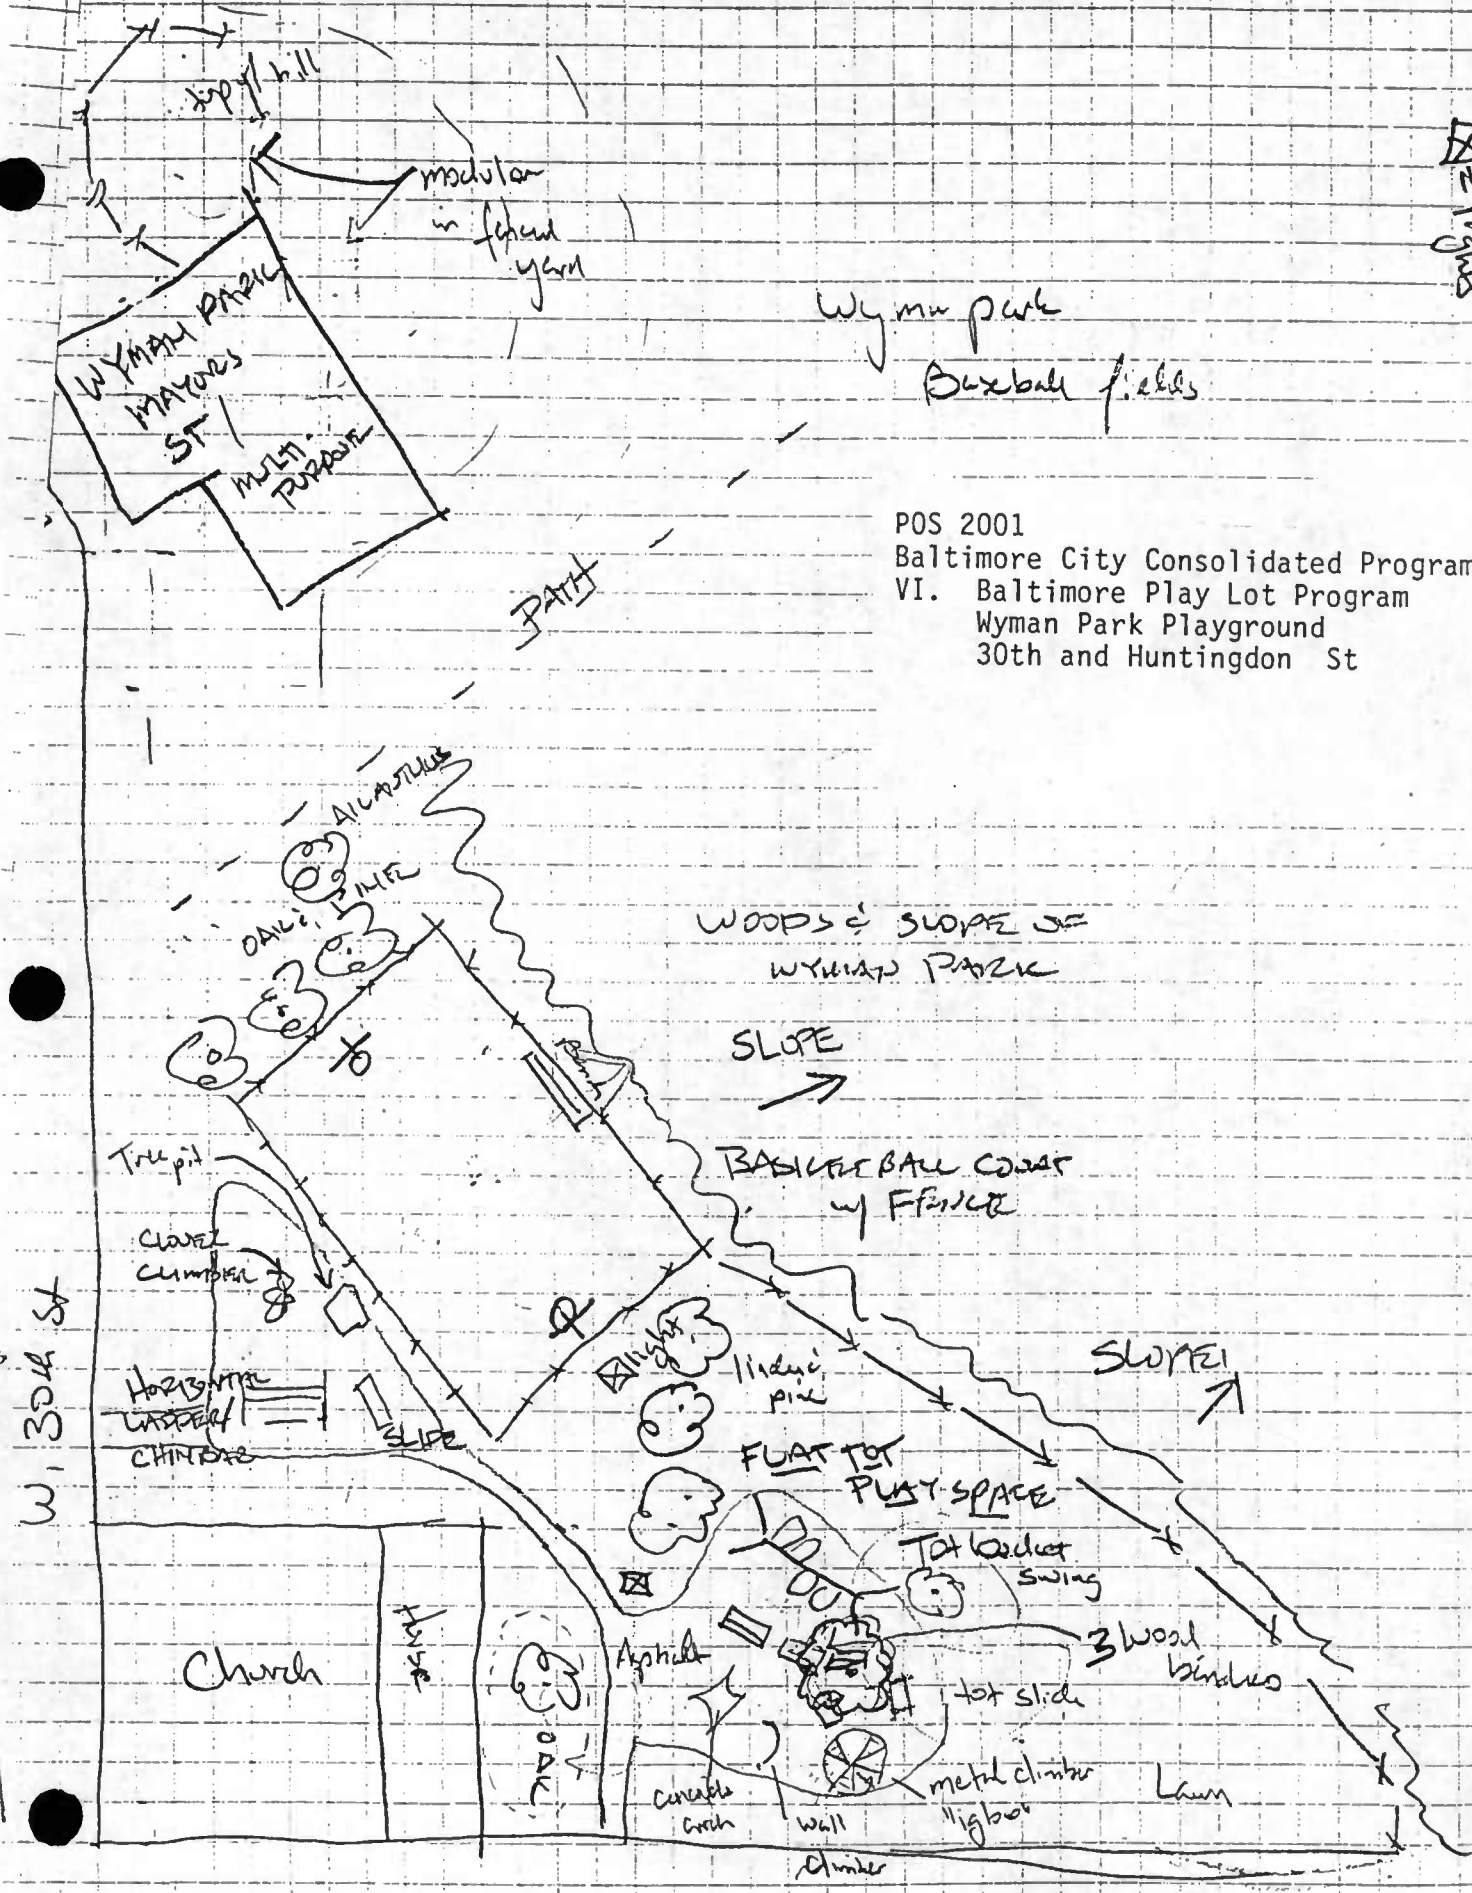 top of hill
modular
in fenced
yard
= lights
WYMAN PARK
MAYORS
ST
MULTI-
PURPOSE
Wyman park
Baseball fields
POS 2001
Baltimore City Consolidated Program
VI. Baltimore Play Lot Program
Wyman Park Playground
30th and Huntingdon St
PATH
AILANTHUS
WOODS & SLOPE OF
WYMAN PARK
SLOPE
BASKETBALL COURT
w/ FENCE
Tree pit
CLOVER
CLIMBER
HORIZONTAL
LADDER/
CHINBAR
SLIDE
W. 30th St
light
linden &
pine
SLOPE
FLAT TOT
PLAY SPACE
Tot bucket
swing
3 wood
tot slide
Church
House
OAK
Asphalt
concrete
arch
wall
climber
metal climber
"igloo"
Lawn